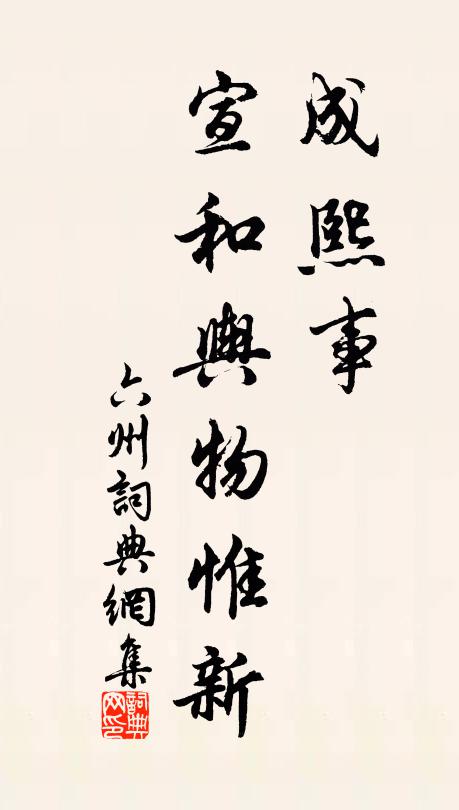 成熙事
宣和與物惟新
六州詞典網集
詞典网印